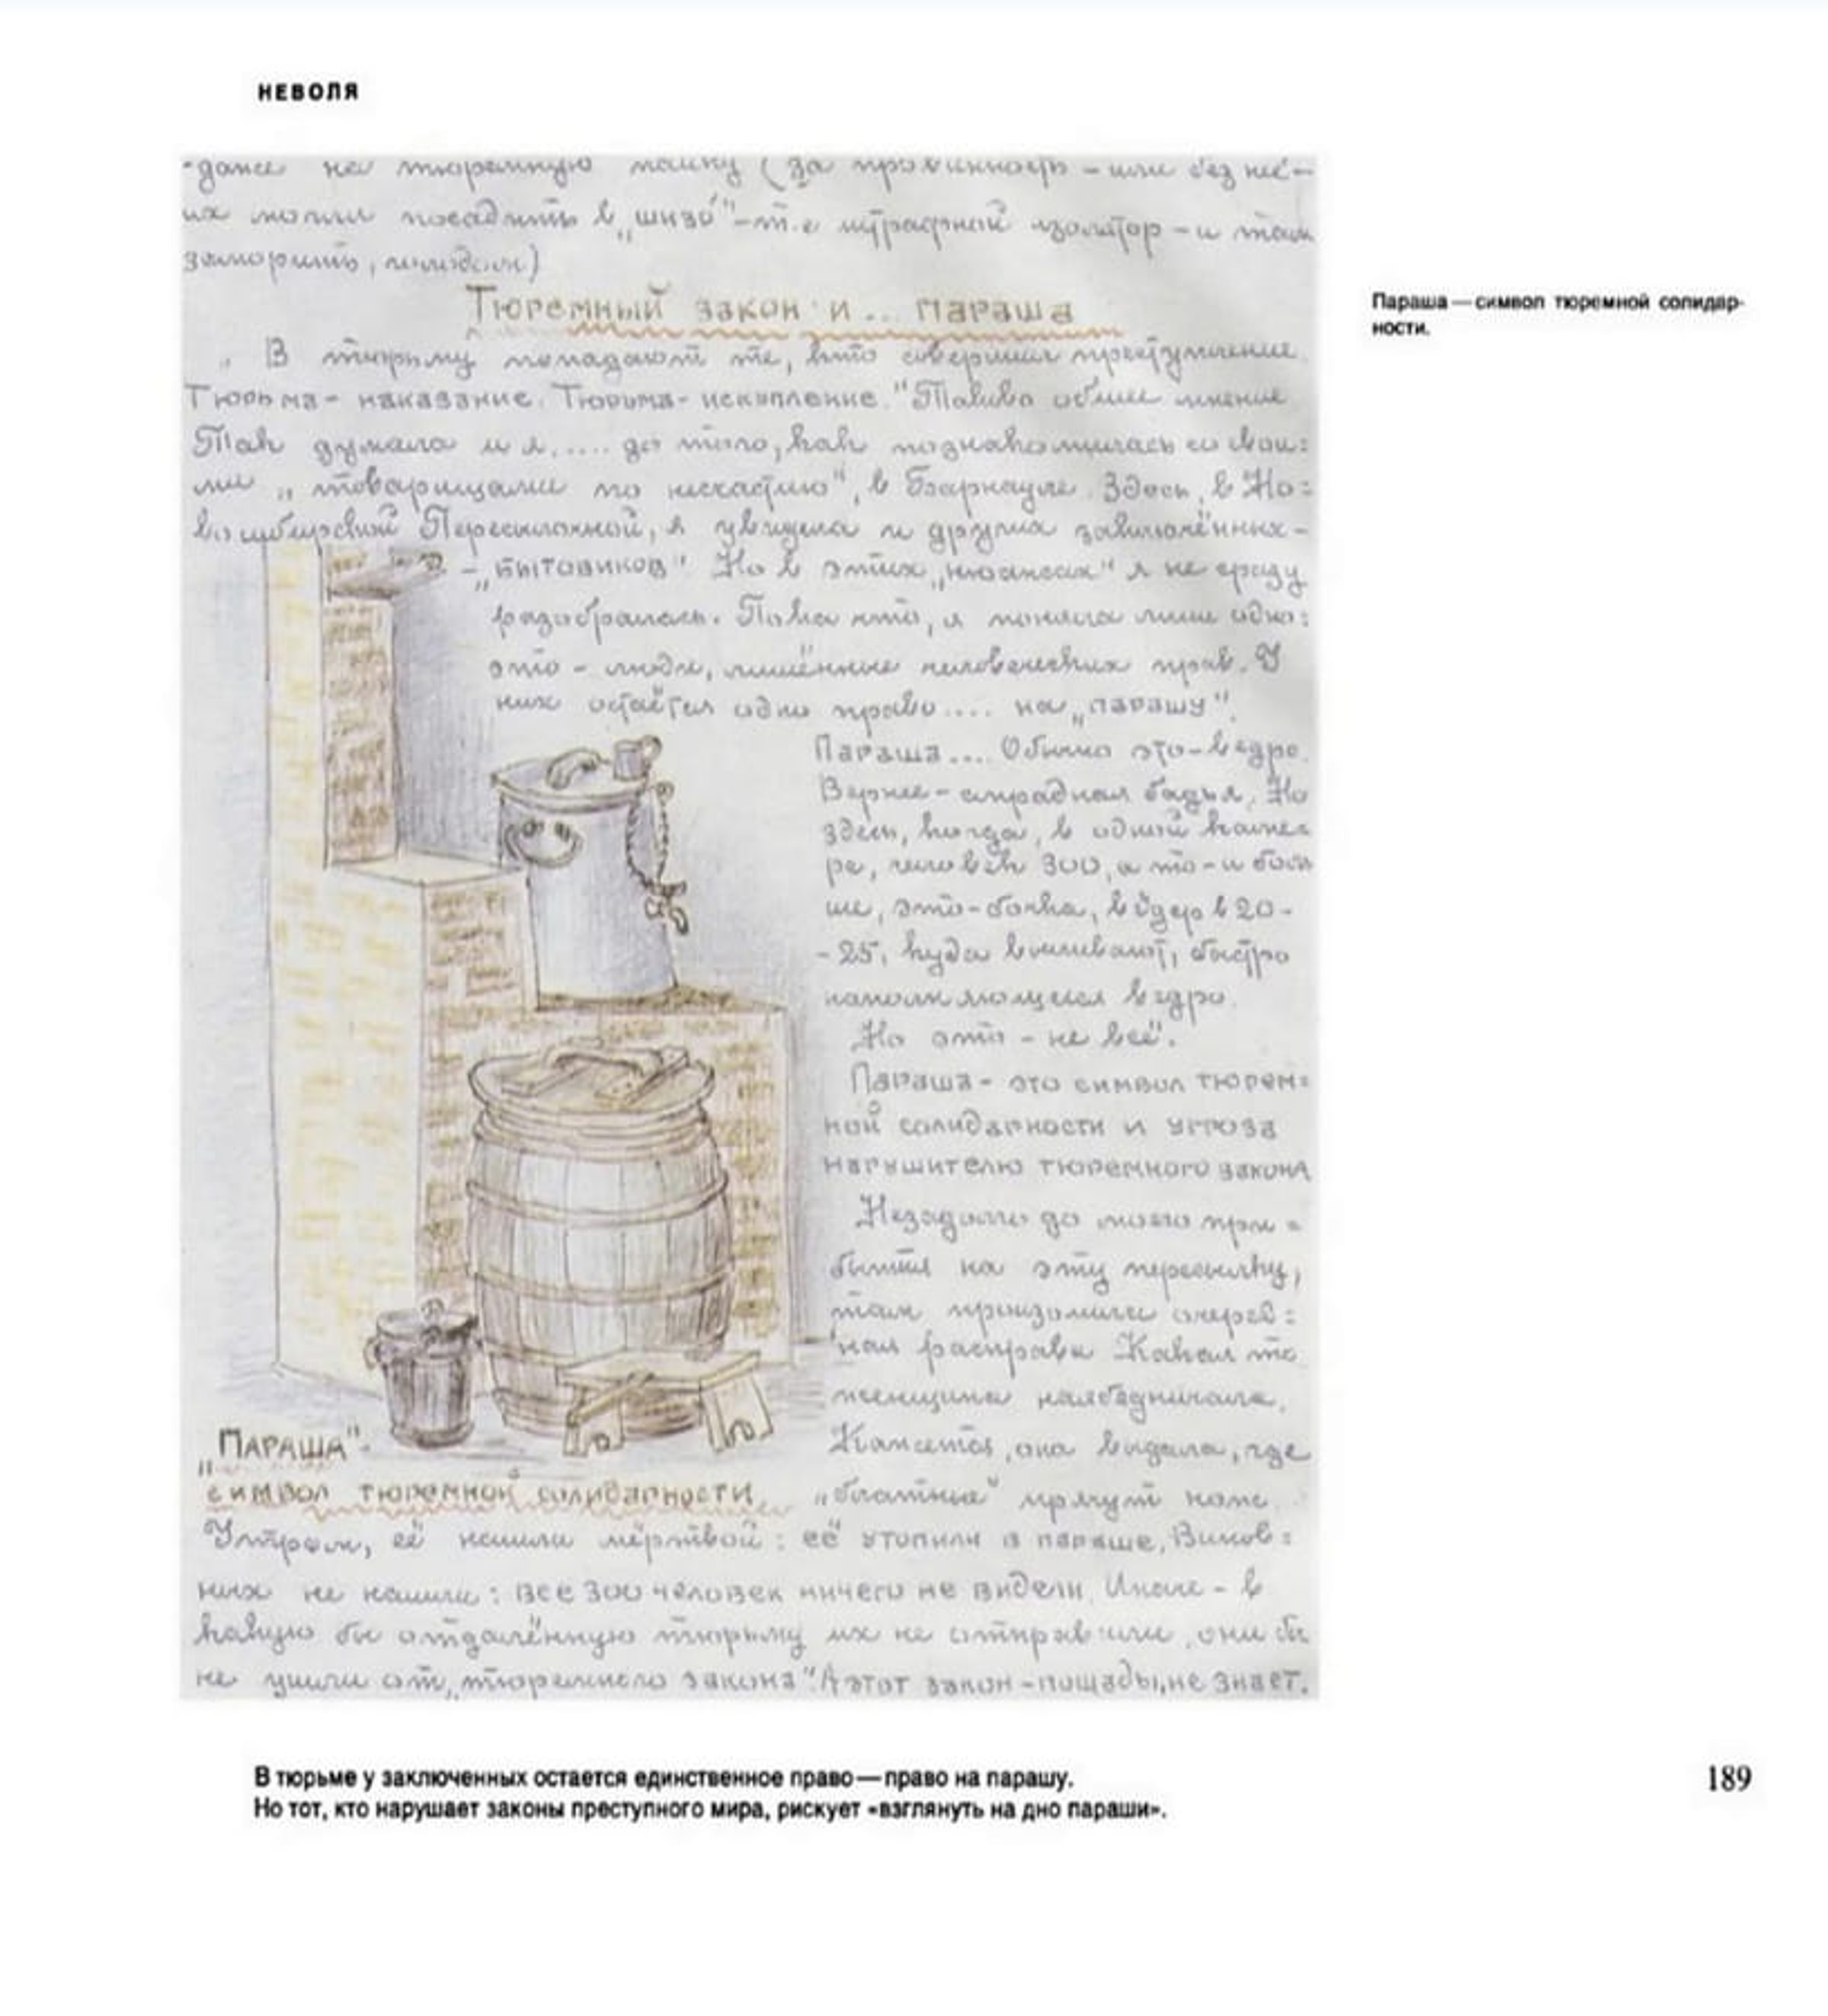 НЕВОЛЯ
-даже на тюремную пайку (За провинность - или без неё -
их могли посадить в „шизо"- т.е штрафной изолятор - и там
заморить, голодом)
Тюремный закон и... параша
„В тюрьму попадают те, кто совершил преступление.
Тюрьма- наказание. Тюрьма- искупление." Таково общее мнение
Так думала и я,.... до того, как познакомилась со свои=
ми „товарищами по несчастью", в Барнауле. Здесь, в Но=
восибирской Пересылочной, я увидела и других заключённых-
-„бытовиков" Но в этих „нюансах" я не сразу
разобралась. Пока что, я поняла лишь одно:
это - люди, лишённые человеческих прав. У
них остаётся одно право.... на „парашу".
Параша... Обычно это-ведро.
Вернее- смрадная бадья. Но
здесь, когда, в одной каме=
ре, человек 300, а то-и боль
ше, это-бочка, вёдер в 20-
-25, куда выливают, быстро
наполняющееся ведро.
Но это - не всё.
Параша- это символ тюрем=
ной солидарности и угроза
нарушителю тюремного закона
Незадолго до моего при=
бытия на эту пересылку,
там произошла очеред=
ная расправа Какая то
женщина наябедничала.
Кажется, она видала, где
„блатные" прячут нож.
„ПАРАША"-
символ тюремной солидарности
Утром, её нашли мёртвой: её утопили в параше. Винов=
ных не нашли: все 300 человек ничего не видели. Иначе - в
какую бы отдалённую тюрьму их не отправили, они бы
не ушли от „тюремного закона". А этот закон - пощады, не знает.
Параша—символ тюремной солидар-
ности.
В тюрьме у заключенных остается единственное право—право на парашу.
Но тот, кто нарушает законы преступного мира, рискует «взглянуть на дно параши».
189